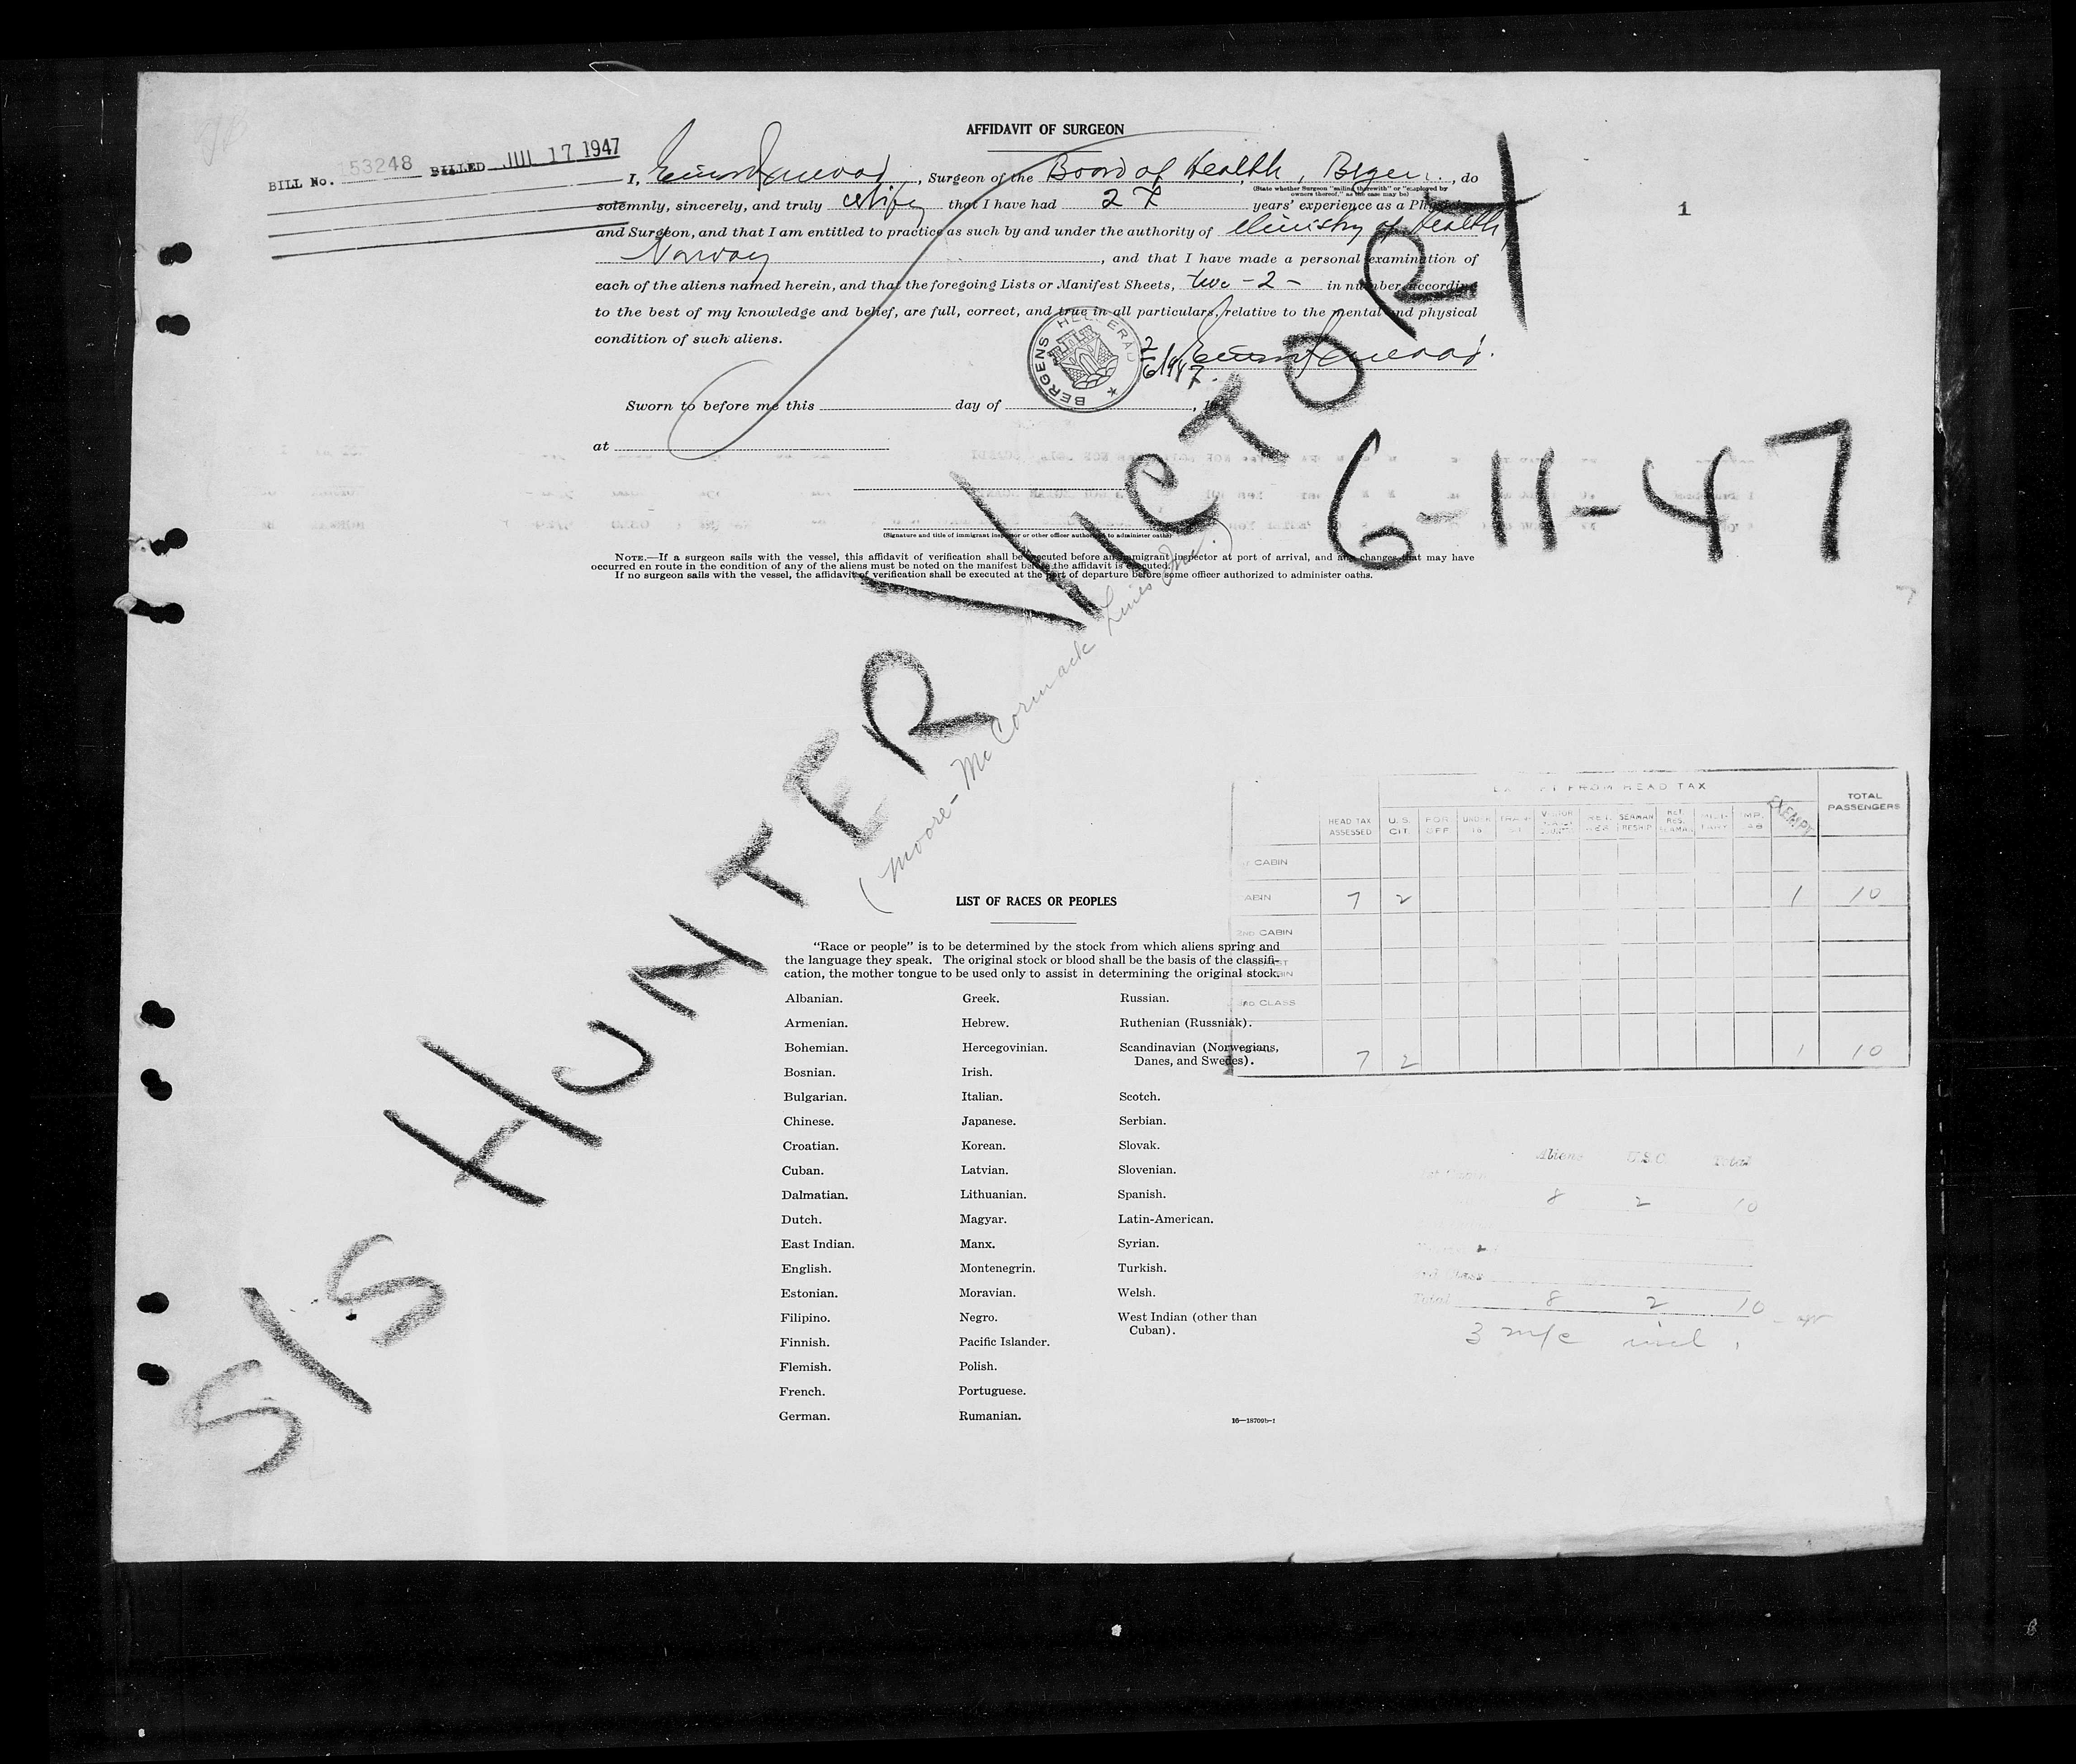 AFFIDAVIT OF SURGEON
BILL No. 153248 BILLED JUL 17 1947
I, , Surgeon of the Board of Health, Bergen., do
(State whether Surgeon "sailing therewith" or "employed by owners thereof," as the case may be)
solemnly, sincerely, and truly certify that I have had 27 years' experience as a Physician
and Surgeon, and that I am entitled to practice as such by and under the authority of Ministry of Health,
Norway, and that I have made a personal examination of
each of the aliens named herein, and that the foregoing Lists or Manifest Sheets, two -2- in number, according
to the best of my knowledge and belief, are full, correct, and true in all particulars, relative to the mental and physical
condition of such aliens.
BERGENS HELSERÅD
2/6 1947.
Sworn to before me this day of , 19
at
(Signature and title of immigrant inspector or other officer authorized to administer oaths)
NOTE.—If a surgeon sails with the vessel, this affidavit of verification shall be executed before an immigrant inspector at port of arrival, and any changes that may have
occurred en route in the condition of any of the aliens must be noted on the manifest before the affidavit is executed.
If no surgeon sails with the vessel, the affidavit of verification shall be executed at the port of departure before some officer authorized to administer oaths.
1
S/S HUNTER VICTORY
6-11-47
(Moore-McCormack Lines Inc.)
EXEMPT FROM HEAD TAX
HEAD TAX ASSESSED U.S. CIT. FOR. OFF. UNDER 16 EXEMPT TOTAL PASSENGERS
1ST CABIN
CABIN 7 2 1 10
2ND CABIN
3RD CLASS
7 2 1 10
LIST OF RACES OR PEOPLES
"Race or people" is to be determined by the stock from which aliens spring and
the language they speak. The original stock or blood shall be the basis of the classifi-
cation, the mother tongue to be used only to assist in determining the original stock.
Albanian. Greek. Russian.
Armenian. Hebrew. Ruthenian (Russniak).
Bohemian. Hercegovinian. Scandinavian (Norwegians,
Danes, and Swedes).
Bosnian. Irish.
Bulgarian. Italian. Scotch.
Chinese. Japanese. Serbian.
Croatian. Korean. Slovak.
Cuban. Latvian. Slovenian.
Dalmatian. Lithuanian. Spanish.
Dutch. Magyar. Latin-American.
East Indian. Manx. Syrian.
English. Montenegrin. Turkish.
Estonian. Moravian. Welsh.
Filipino. Negro. West Indian (other than
Cuban).
Finnish. Pacific Islander.
Flemish. Polish.
French. Portuguese.
German. Rumanian.
16—18700b-1
Aliens U.S.C. Total
8 2 10
Total 8 2 10
3 m/c incl.